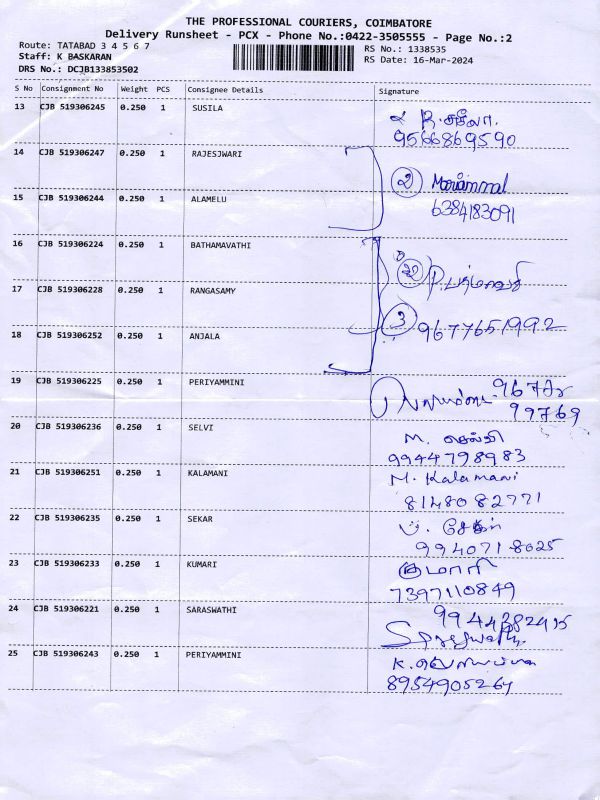 THE PROFESSIONAL COURIERS, COIMBATORE
Delivery Runsheet - PCX - Phone No.:0422-3505555 - Page No.:2
Route: TATABAD 3 4 5 6 7
RS No.: 1338535
Staff: K BASKARAN
RS Date: 16-Mar-2024
DRS No.: DCJB133853502
S No Consignment No Weight PCS Consignee Details Signature
13 CJB 519306245 0.250 1 SUSILA R. சுசீலா.
9566869590
14 CJB 519306247 0.250 1 RAJESJWARI
② Mariammal
15 CJB 519306244 0.250 1 ALAMELU 6384183091
16 CJB 519306224 0.250 1 BATHAMAVATHI
P.
17 CJB 519306228 0.250 1 RANGASAMY
③ 9677651992
18 CJB 519306252 0.250 1 ANJALA
19 CJB 519306225 0.250 1 PERIYAMMINI
99769
20 CJB 519306236 0.250 1 SELVI M. செல்வி
9944798983
21 CJB 519306251 0.250 1 KALAMANI M. Kalamani
8148082771
22 CJB 519306235 0.250 1 SEKAR சேகர்
994071-8025
23 CJB 519306233 0.250 1 KUMARI குமாரி
7397110849
24 CJB 519306221 0.250 1 SARASWATHI
25 CJB 519306243 0.250 1 PERIYAMMINI K.
8954905264